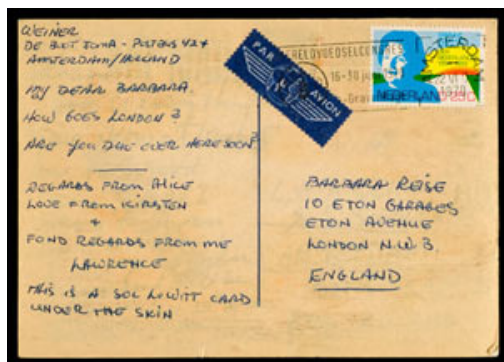 WEINER
DE BOOT JOMA - POSTBUS 424
AMSTERDAM/HOLLAND
MY DEAR BARBARA.
HOW GOES LONDON?
ARE YOU DUE OVER HERE SOON?
REGARDS FROM ALICE
LOVE FROM KIRSTEN
+
FOND REGARDS FROM ME
LAWRENCE
THIS IS A SOL LEWITT CARD
UNDER THE SKIN
PAR AVION
WERELDVOEDSELCONGRES
16-30
AMSTERDAM
1970
NEDERLAND
BARBARA REISE
10 ETON GARAGES
ETON AVENUE
LONDON N.W.3.
ENGLAND